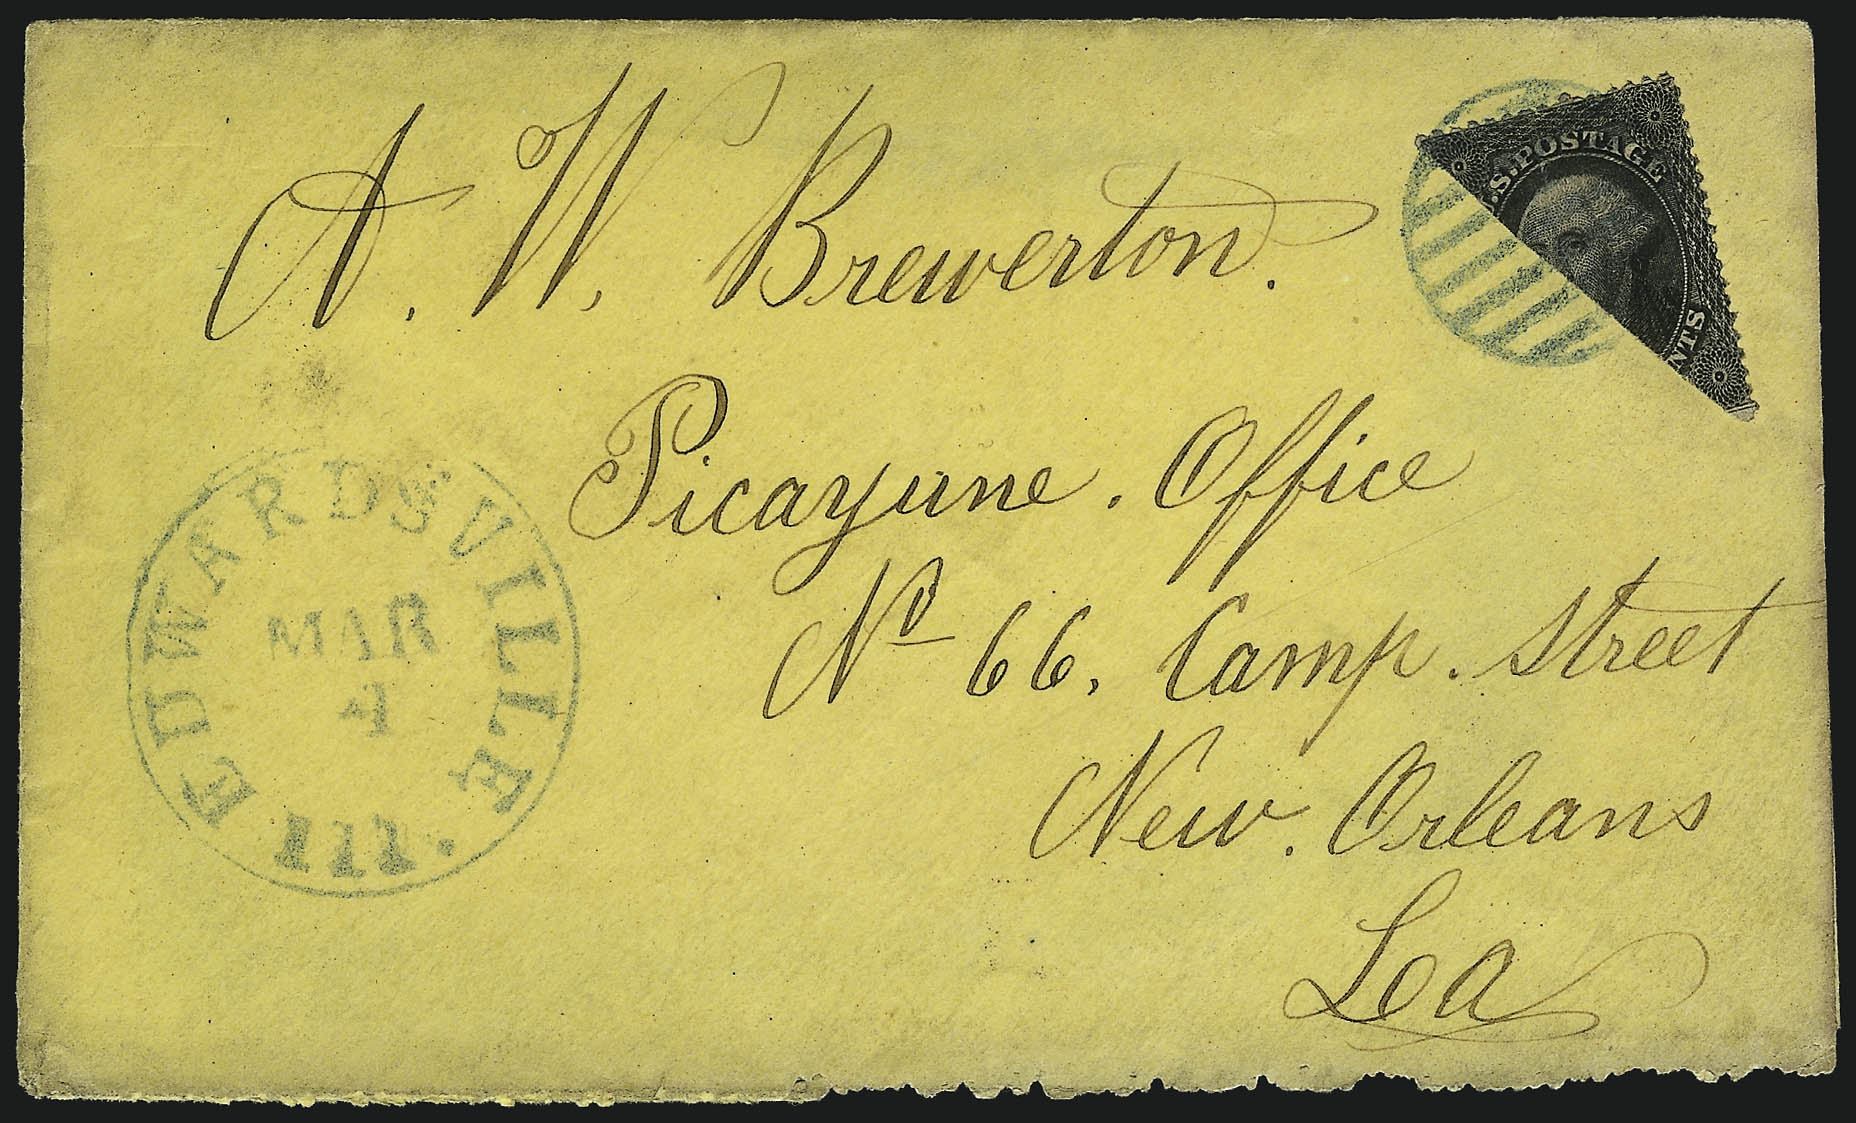 A. W. Brewerton.
U.S. POSTAGE
NTS
Picayune. Office
No 66. Camp. Street
New. Orleans
Loa
EDWARDSVILLE.
MAR
4
Ill.